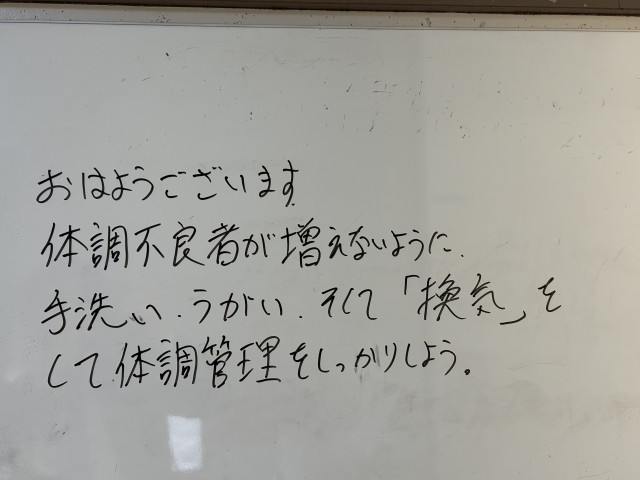 おはようございます
体調不良者が増えないように、
手洗い、うがい、そして「換気」を
して体調管理をしっかりしよう。